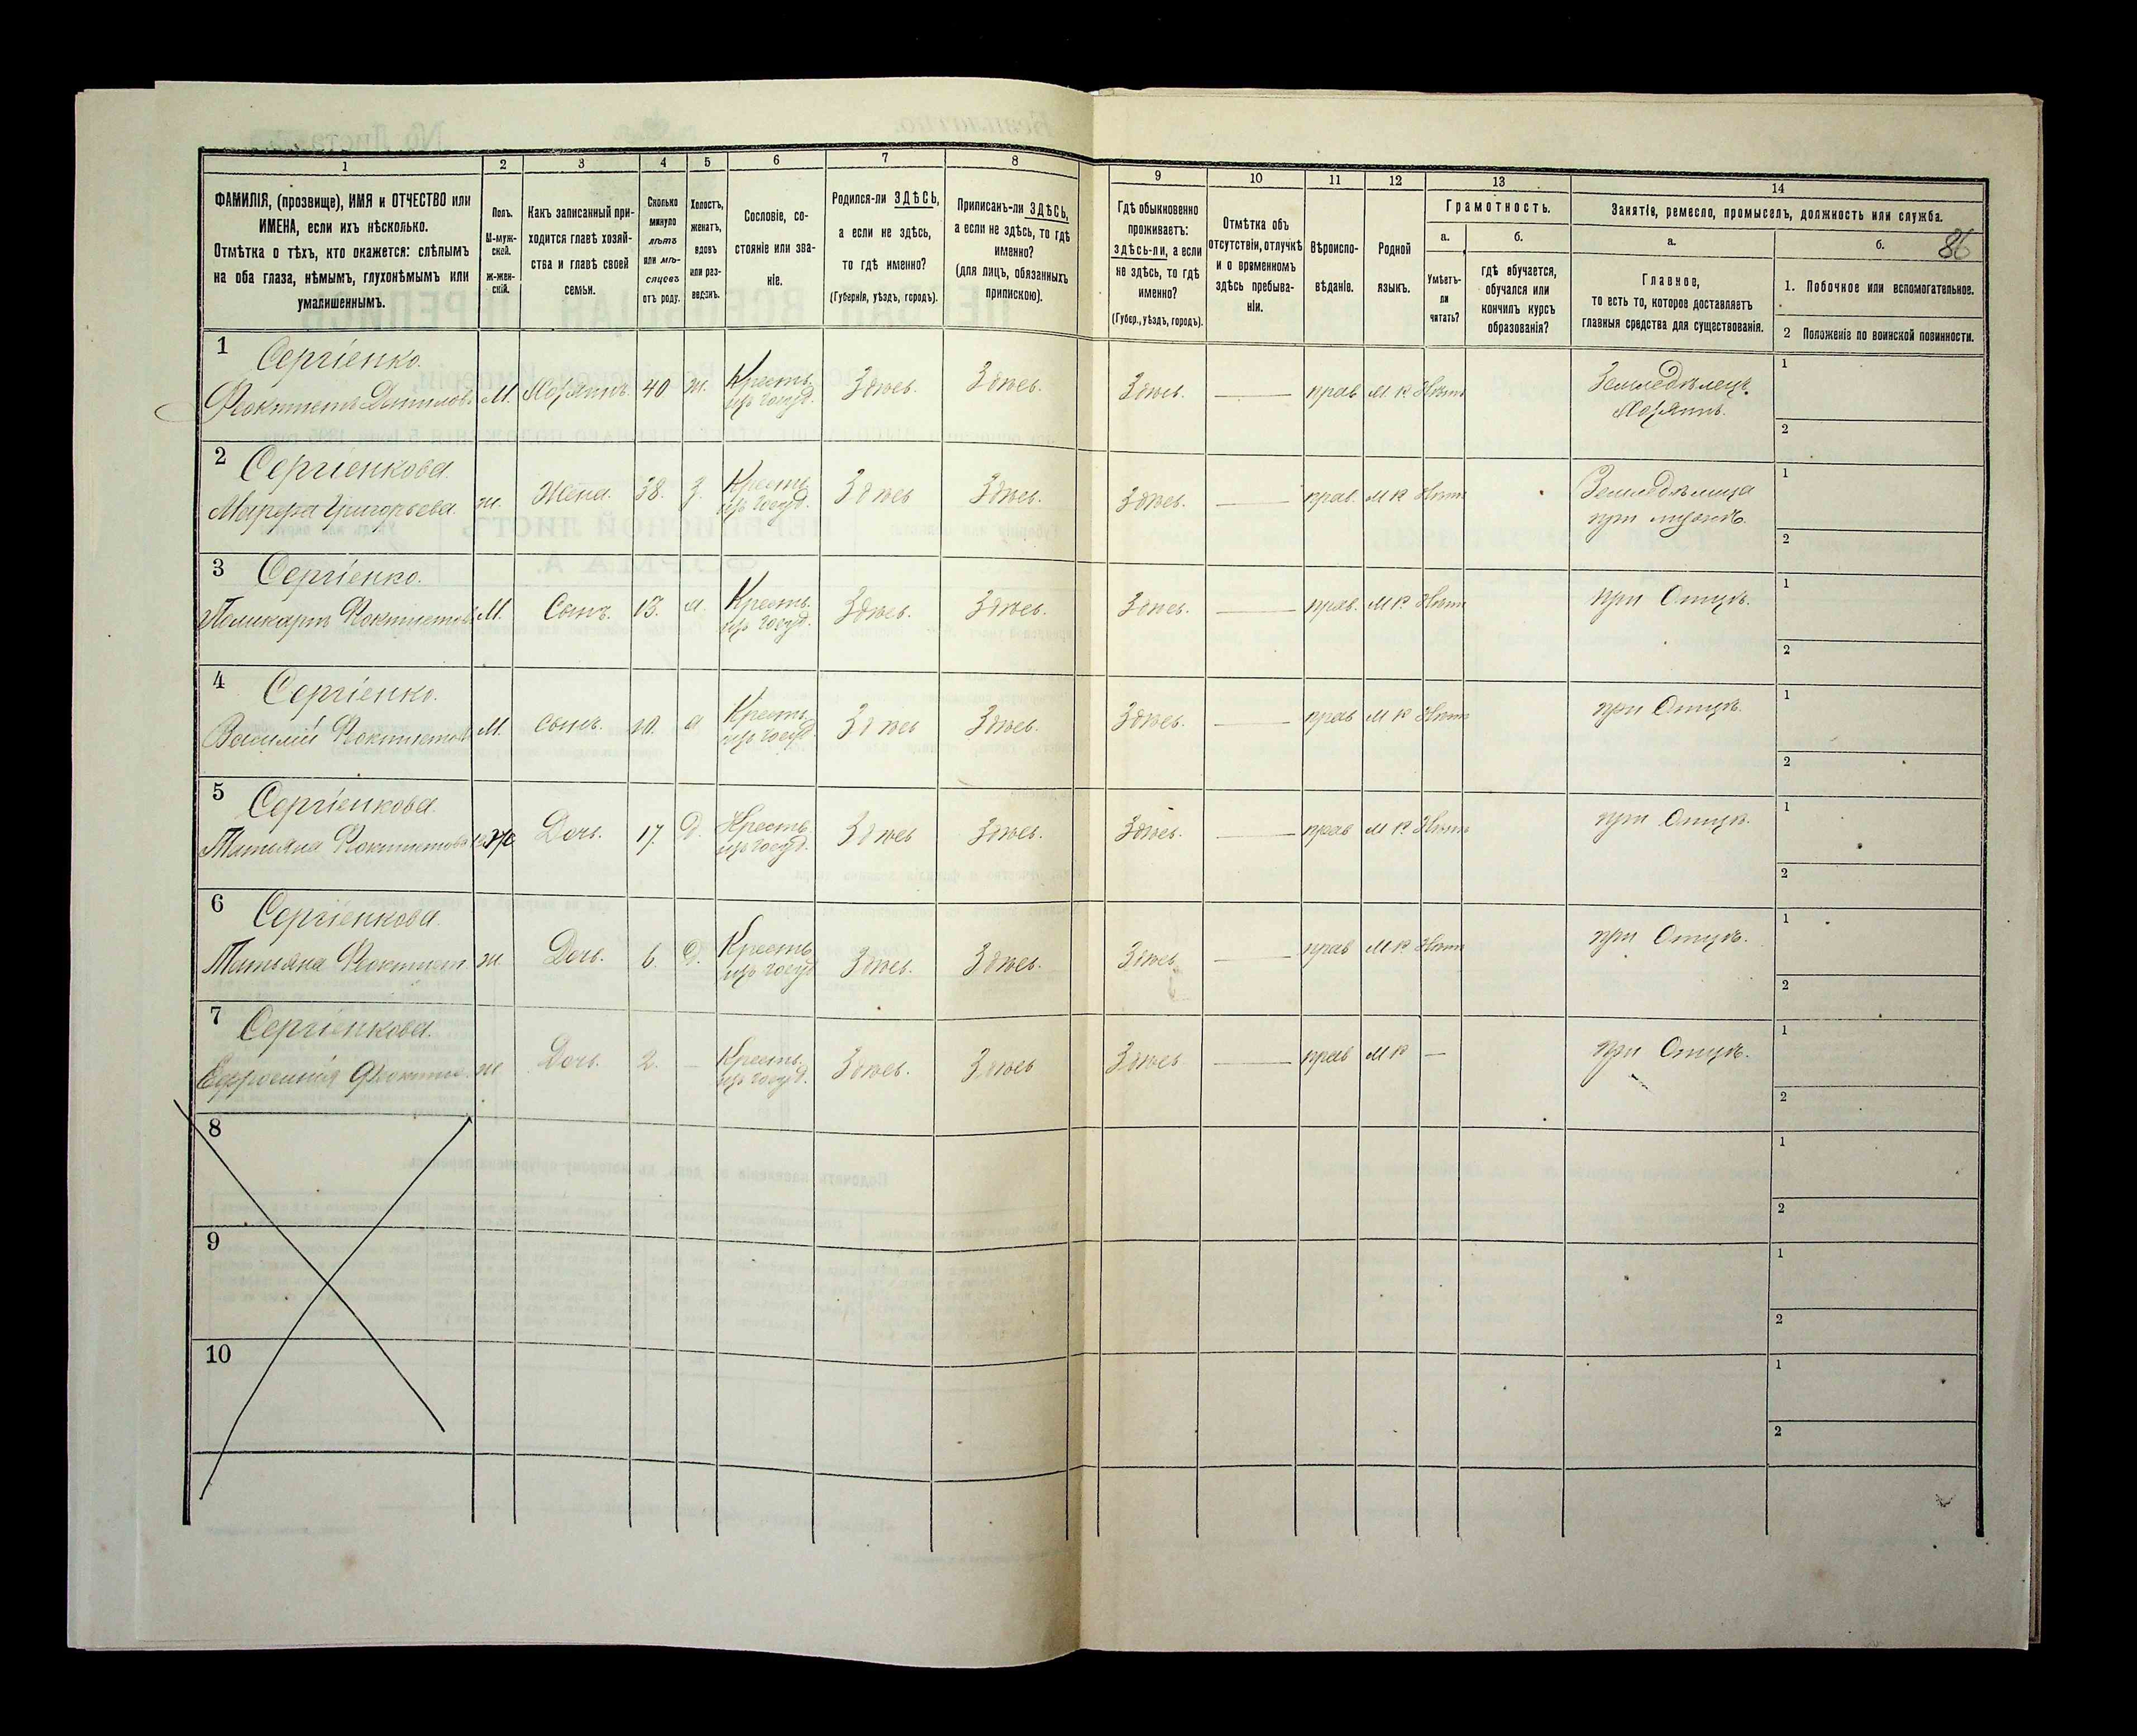 1
2
3
4
5
6
7
8
9
10
11
12
13
14
ФАМИЛІЯ, (прозвище), ИМЯ и ОТЧЕСТВО или
ИМЕНА, если ихъ нѣсколько.
Отмѣтка о тѣхъ, кто окажется: слѣпымъ
на оба глаза, нѣмымъ, глухонѣмымъ или
умалишеннымъ.
Полъ.
М-муж-
ской.
Ж-жен-
скій.
Какъ записанный при-
ходится главѣ хозяй-
ства и главѣ своей
семьи.
Сколько
минуло
лѣтъ
или мѣ-
сяцевъ
отъ роду.
Холостъ,
женатъ,
вдовъ
или раз-
веденъ.
Сословіе, со-
стояніе или зва-
ніе.
Родился-ли ЗДѢСЬ,
а если не здѣсь,
то гдѣ именно?
(Губернія, уѣздъ, городъ).
Приписанъ-ли ЗДѢСЬ,
а если не здѣсь, то гдѣ
именно?
(для лицъ, обязанныхъ
припискою).
Гдѣ обыкновенно
проживаетъ:
здѣсь-ли, а если
не здѣсь, то гдѣ
именно?
(Губер., уѣздъ, городъ).
Отмѣтка объ
отсутствіи, отлучкѣ
и о временномъ
здѣсь пребыва-
ніи.
Вѣроиспо-
вѣданіе.
Родной
языкъ.
Грамотность.
а.
б.
Умѣетъ-
ли
читать?
гдѣ обучается,
обучался или
кончилъ курсъ
образованія?
Занятіе, ремесло, промыселъ, должность или служба.
а.
б.
86
Главное,
то есть то, которое доставляетъ
главныя средства для существованія.
1. Побочное или вспомогательное.
2 Положеніе по воинской повинности.
1 Сергіенко.
Феоктистъ Даниловъ М. Хозяинъ. 40 ж. Кресть. изъ госуд. Здѣсь. Здѣсь. Здѣсь. — прав М. Р Нѣтъ Земледѣлецъ. Хозяинъ.
1
2
2 Сергіенкова
Григорьева ж. Жена. 38. З. Кресть изъ госуд. Здѣсь Здѣсь. Здѣсь. — прав. М Р Нѣтъ Земледѣлица при мужѣ.
1
2
3 Сергіенко.
Поликарпъ Феоктистовъ М. Сынъ. 13. Кресть. изъ госуд. Здѣсь. Здѣсь. Здѣсь. — прав. М Р Нѣтъ при Отцѣ.
1
2
4 Сергіенко.
Василій Феоктистовъ М. Сынъ. 10. Кресть изъ госуд. Здѣсь Здѣсь. Здѣсь. — прав М Р Нѣтъ при Отцѣ.
1
2
5 Сергіенкова
Татьяна Феоктистова Ж Дочь. 17. Д. Кресть изъ госуд. Здѣсь Здѣсь. Здѣсь. — прав М Р Нѣтъ при Отцѣ.
1
2
6 Сергіенкова
Татьяна Феоктист. ж. Дочь. 6. Д. Кресть изъ госуд Здѣсь. Здѣсь. Здѣсь — прав М Р Нѣтъ при Отцѣ.
1
2
7 Сергіенкова
Ефросинія ж Дочь. 2. — Кресть. изъ госуд. Здѣсь. Здѣсь Здѣсь — прав М Р — при Отцѣ.
1
2
8
1
2
9
1
2
10
1
2